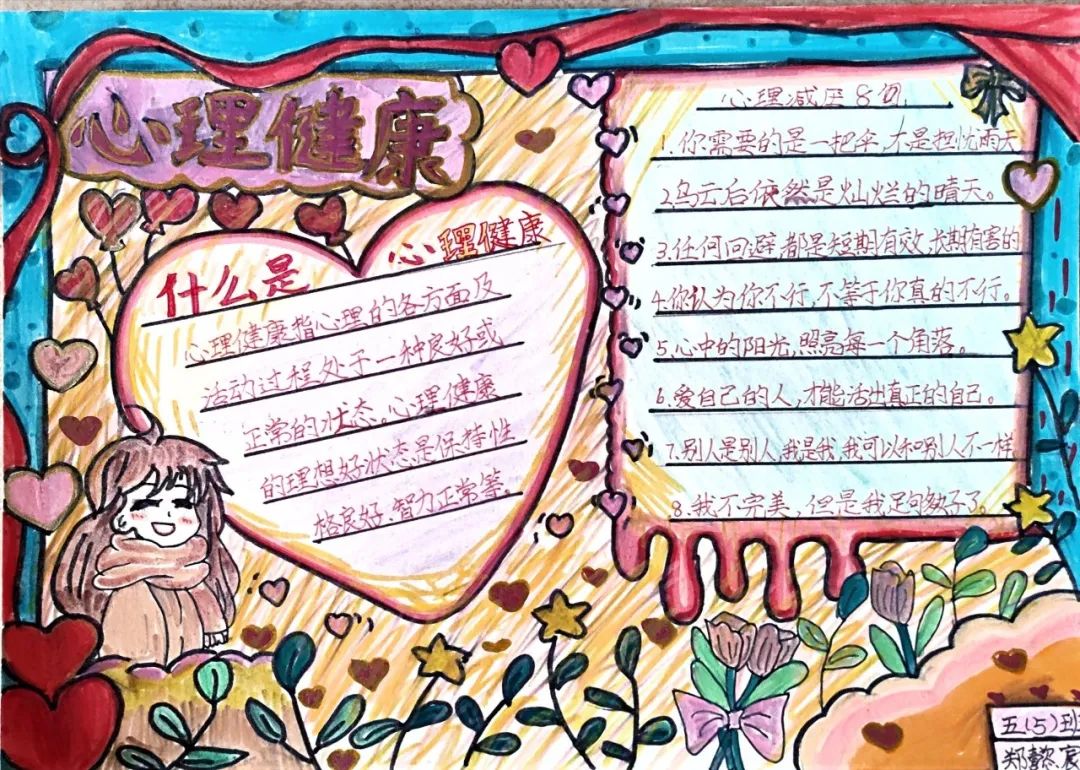 心理健康
什么是 心理健康
心理健康指心理的各方面及
活动过程处于一种良好或
正常的状态。心理健康
的理想好状态是保持性
格良好、智力正常等。
心理减压8句
1.你需要的是一把伞,不是担忧雨天
2.乌云后依然是灿烂的晴天。
3.任何回避都是短期有效,长期有害的
4.你认为你不行,不等于你真的不行。
5.心中的阳光,照亮每一个角落。
6.爱自己的人,才能活出真正的自己。
7.别人是别人,我是我,我可以和别人不一样
8.我不完美,但是我足够努力了。
五(5)班
郑懿宸